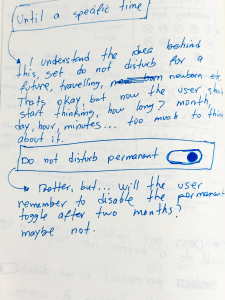 Until a specific time
I understand the idea behind
this, set do not disturb for a
future, travelling, newborn etc
Thats okay, but now the user should
start thinking, how long? month,
day, hour, minutes... too much to think
about it.
Do not disturb permanent
Better, but... will the user
remember to disable the permanent
toggle after two months?
maybe not.